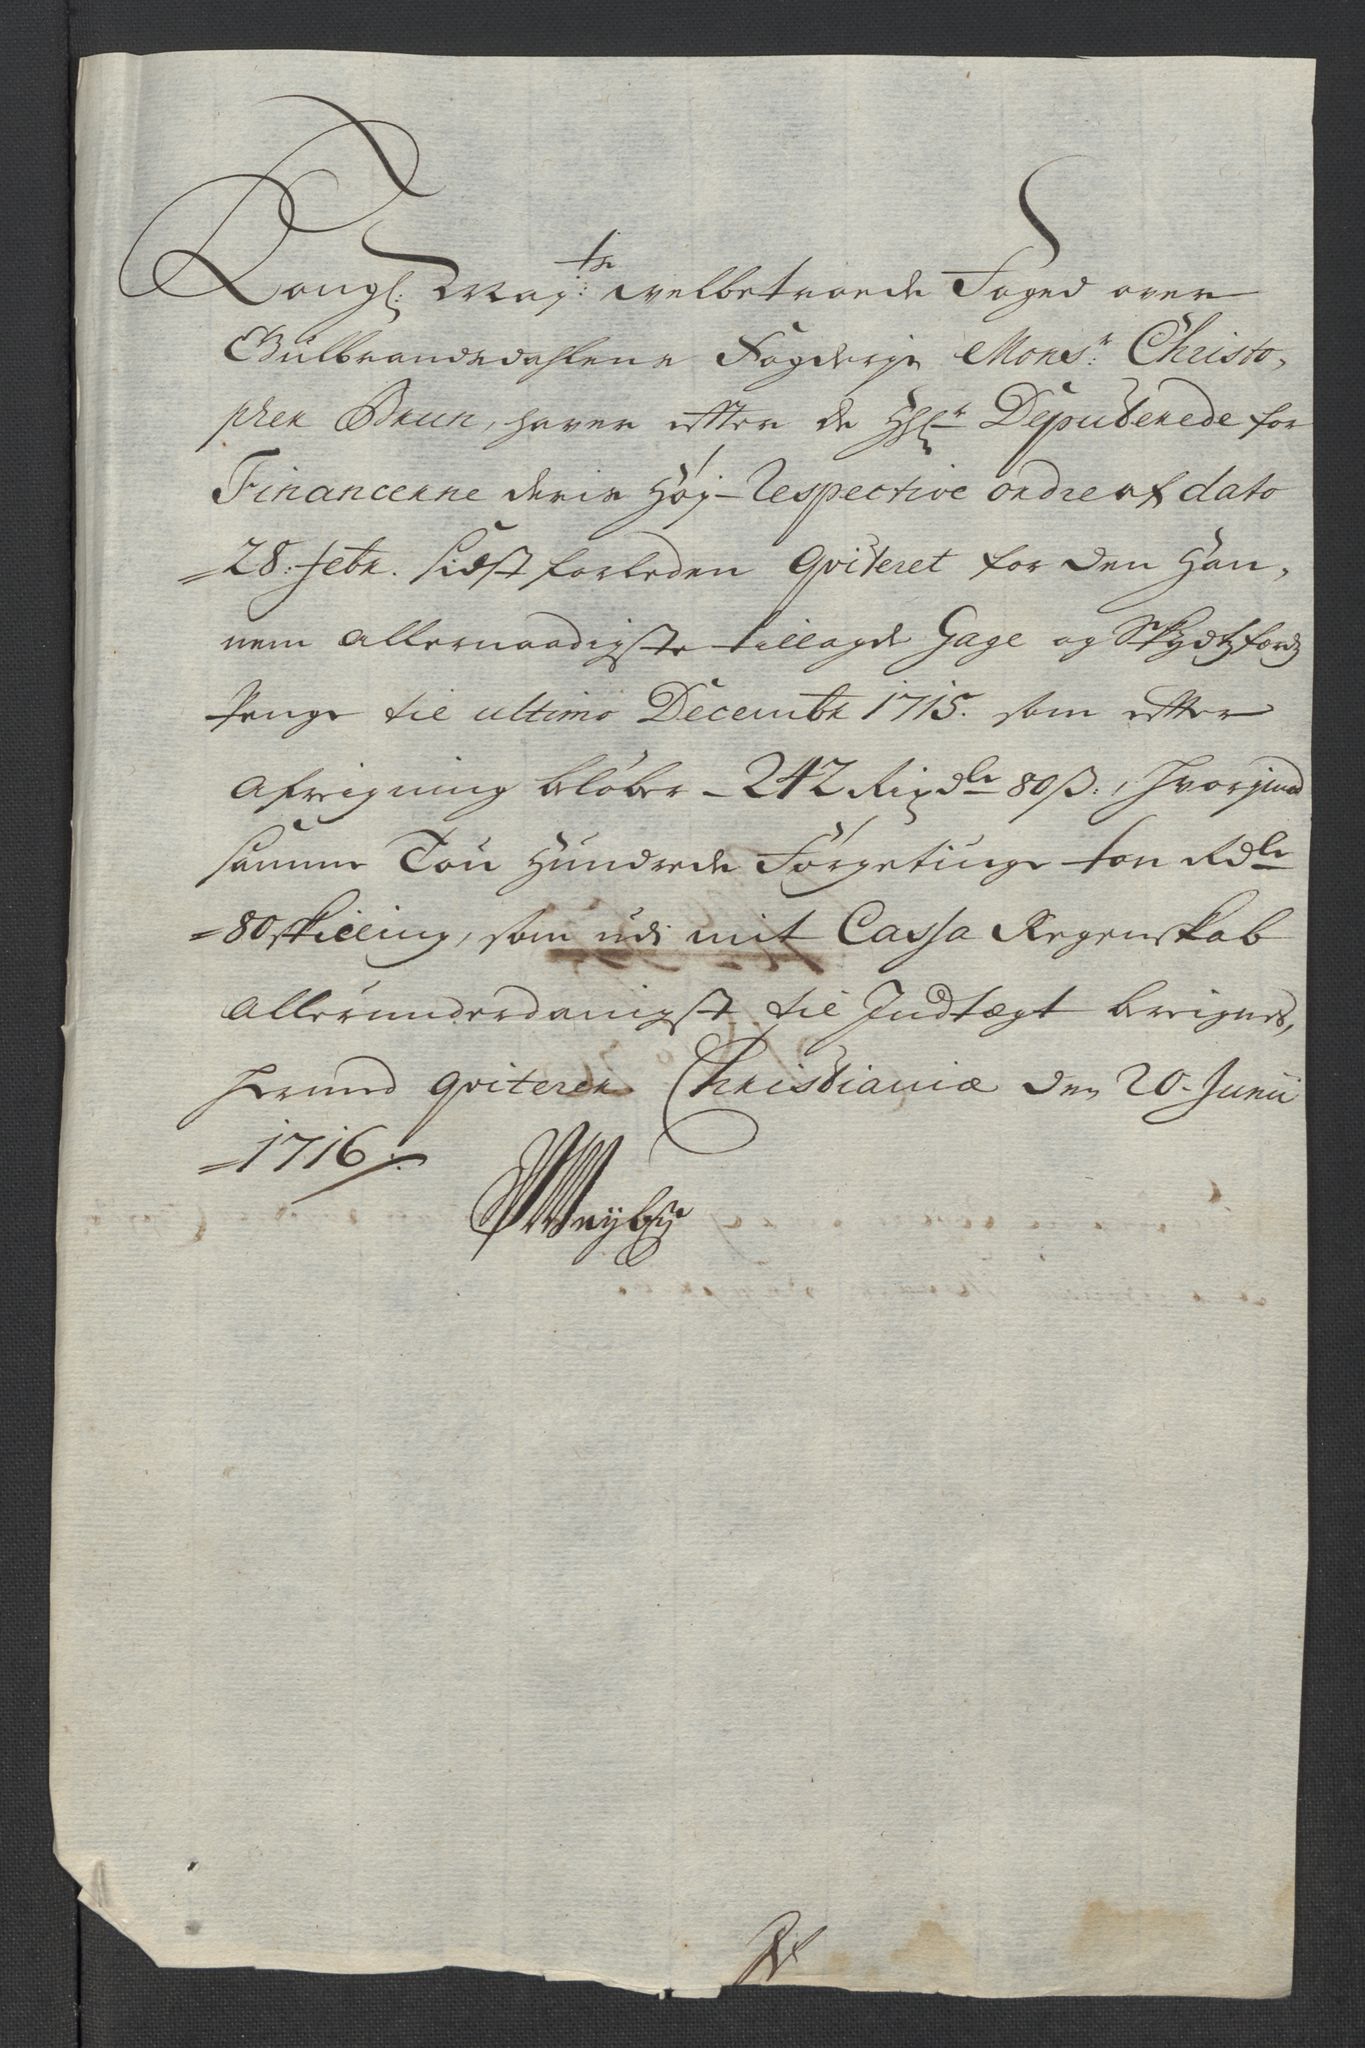 Kongl: May:ts welbetroede Foged over
Gulbrandsdahlens Fogderje Monsr: Christo,
pher Brun, haver efter de HHr Deputerede for
Financerne deris Høy-Respective ordre af dato
28: febr. sidst forleden qviteret for den Han,
nem allernaadigste tillagde Gage og Skydtzferds
Penge til ultimo Decembr 1715. som efter
afreigning beløber - 242 Rixdlr 80ß:, hvorimod
samme Tou Hundrede Førgetiuge toe Rdlr
80 skilling, som udi mit Cassa Regenskab
allerunderdanigst til Indtægt bereignes,
hermed qviterer Christianiæ den 20. Junii
1716: